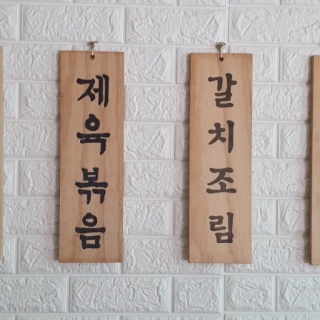 제육볶음
갈치조림